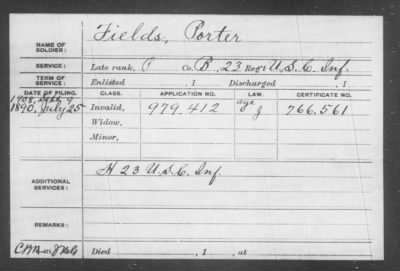 Fields, Porter
NAME OF SOLDIER:
SERVICE: Late rank, P Co. B, 23 Reg't U.S.C. Inf.
TERM OF SERVICE: Enlisted , 1 Discharged , 1
DATE OF FILING. CLASS. APPLICATION NO. LAW. CERTIFICATE NO.
1908,
1890, July 25 Invalid, 979.412 age J 766.561
Widow,
Minor,
ADDITIONAL SERVICES: H 23 U.S.C. Inf.
REMARKS:
Died , 1 , at